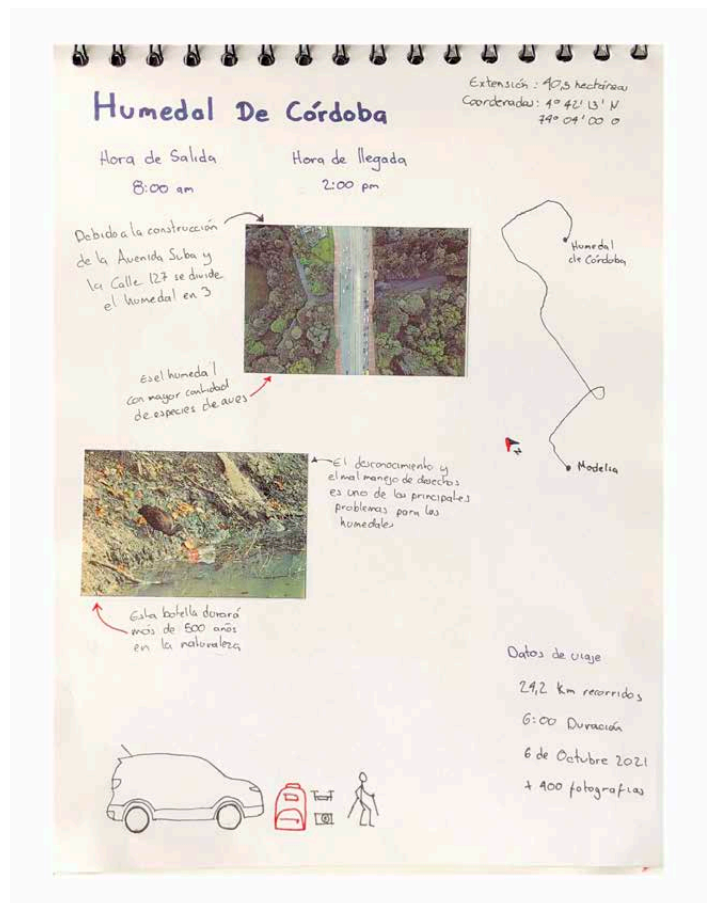 Humedal De Córdoba
Extensión : 40,5 hectáreas
Coordenadas : 4° 42' 13' N
74° 04' 00 O
Hora de Salida
8:00 am
Hora de llegada
2:00 pm
Debido a la construcción
de la Avenida Suba y
la Calle 127 se divide
el humedal en 3
Es el humedal
con mayor cantidad
de especies de aves
Humedal
de Córdoba
Modelia
N
El desconocimiento y
el mal manejo de desechos
es uno de los principales
problemas para los
humedales
Esta botella durará
más de 500 años
en la naturaleza
Datos de viaje
24,2 Km recorridos
6:00 Duración
6 de Octubre 2021
+ 400 fotografías